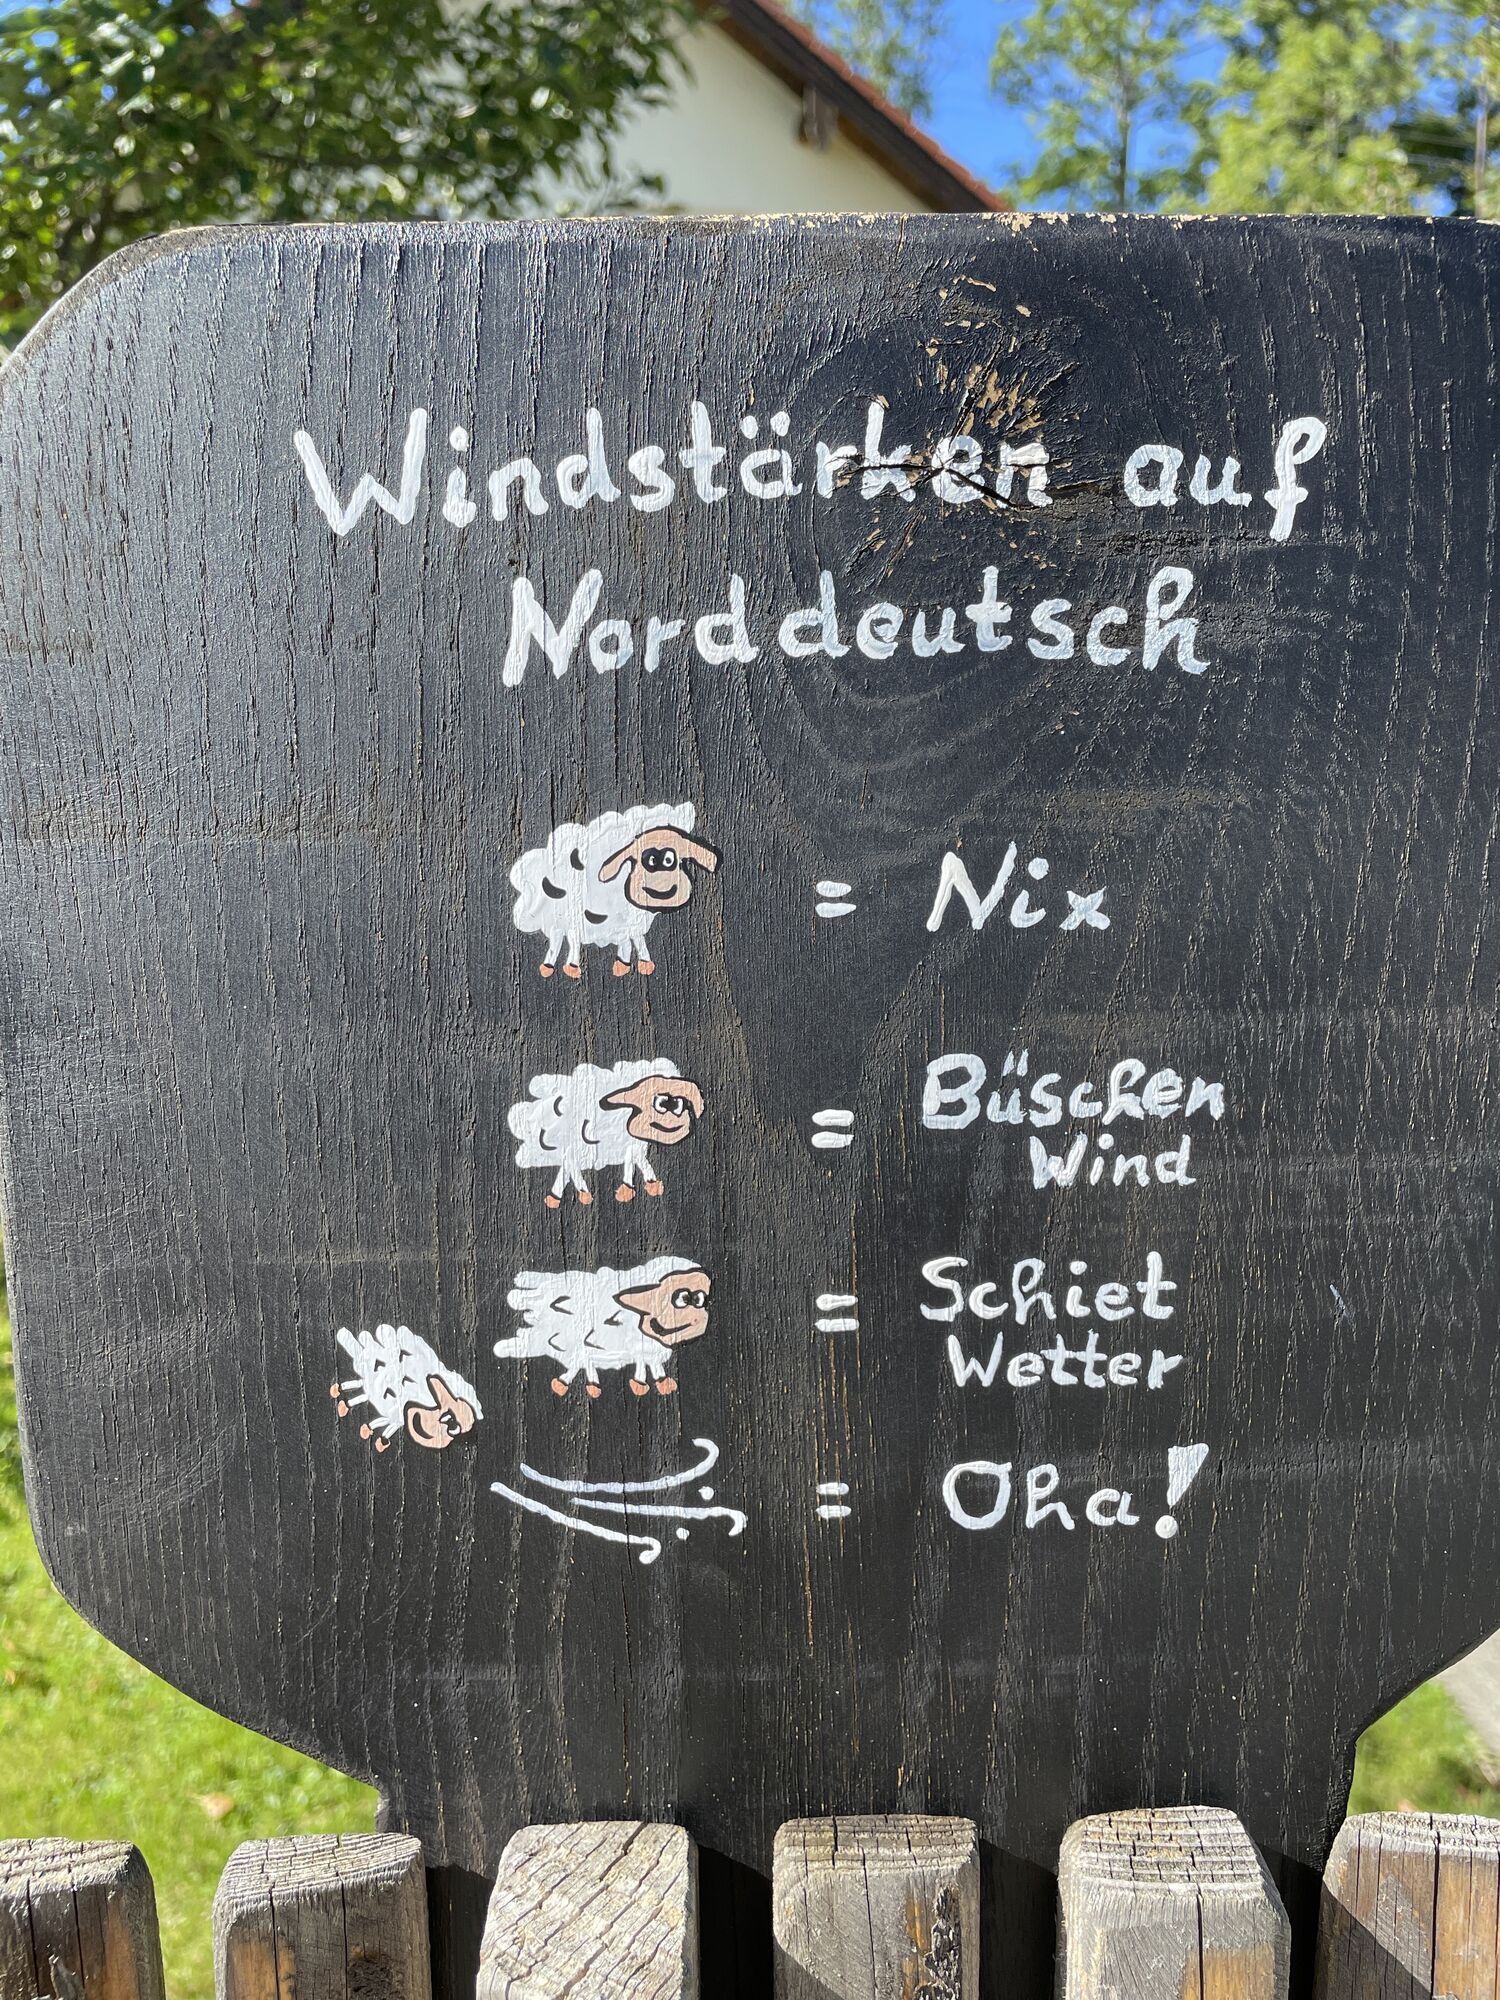 Windstärken auf
Norddeutsch
= Nix
= Büschen
Wind
= Schiet
Wetter
= Oha!